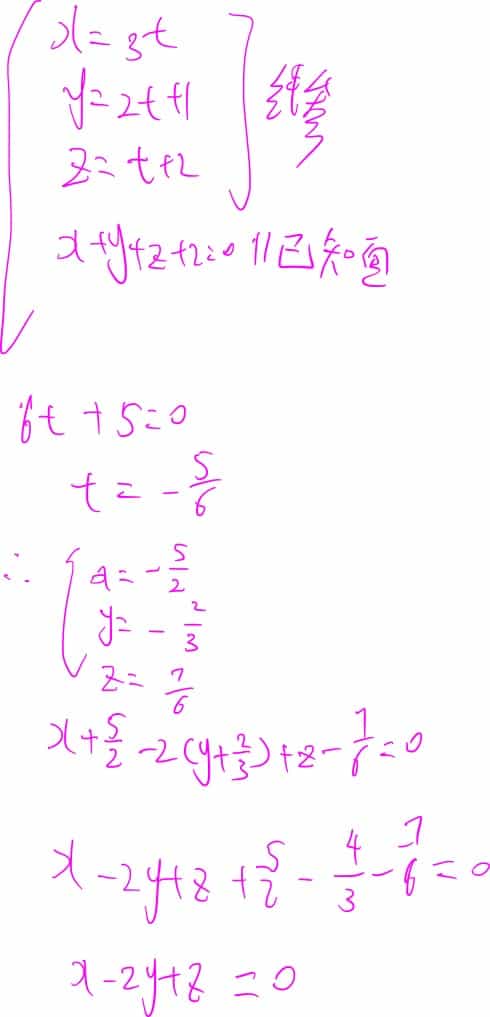 x=3t
y=2t+1
z=t+2
线参
x+y+z+2=0 //已知面
6t+5=0
t=-5/6
∴ x=-5/2
y=-2/3
z=7/6
x+5/2-2(y+2/3)+z-7/6=0
x-2y+z+5/2-4/3-7/6=0
x-2y+z=0